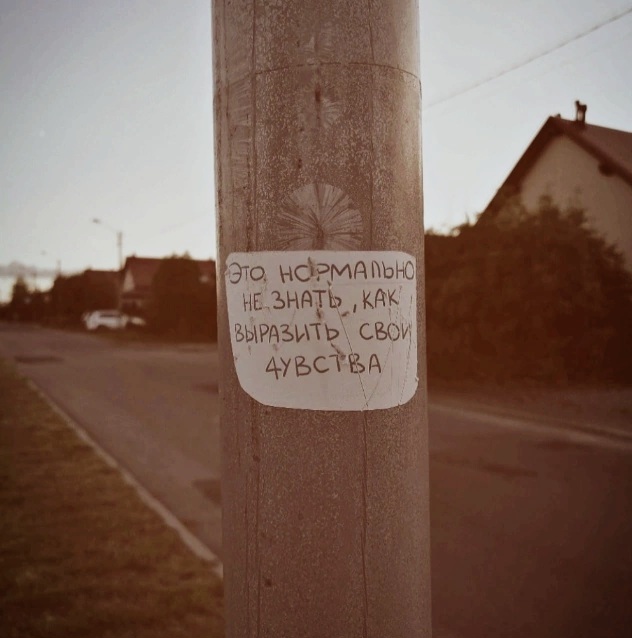 ЭТО НОРМАЛЬНО
НЕ ЗНАТЬ, КАК
ВЫРАЗИТЬ СВОИ
ЧУВСТВА